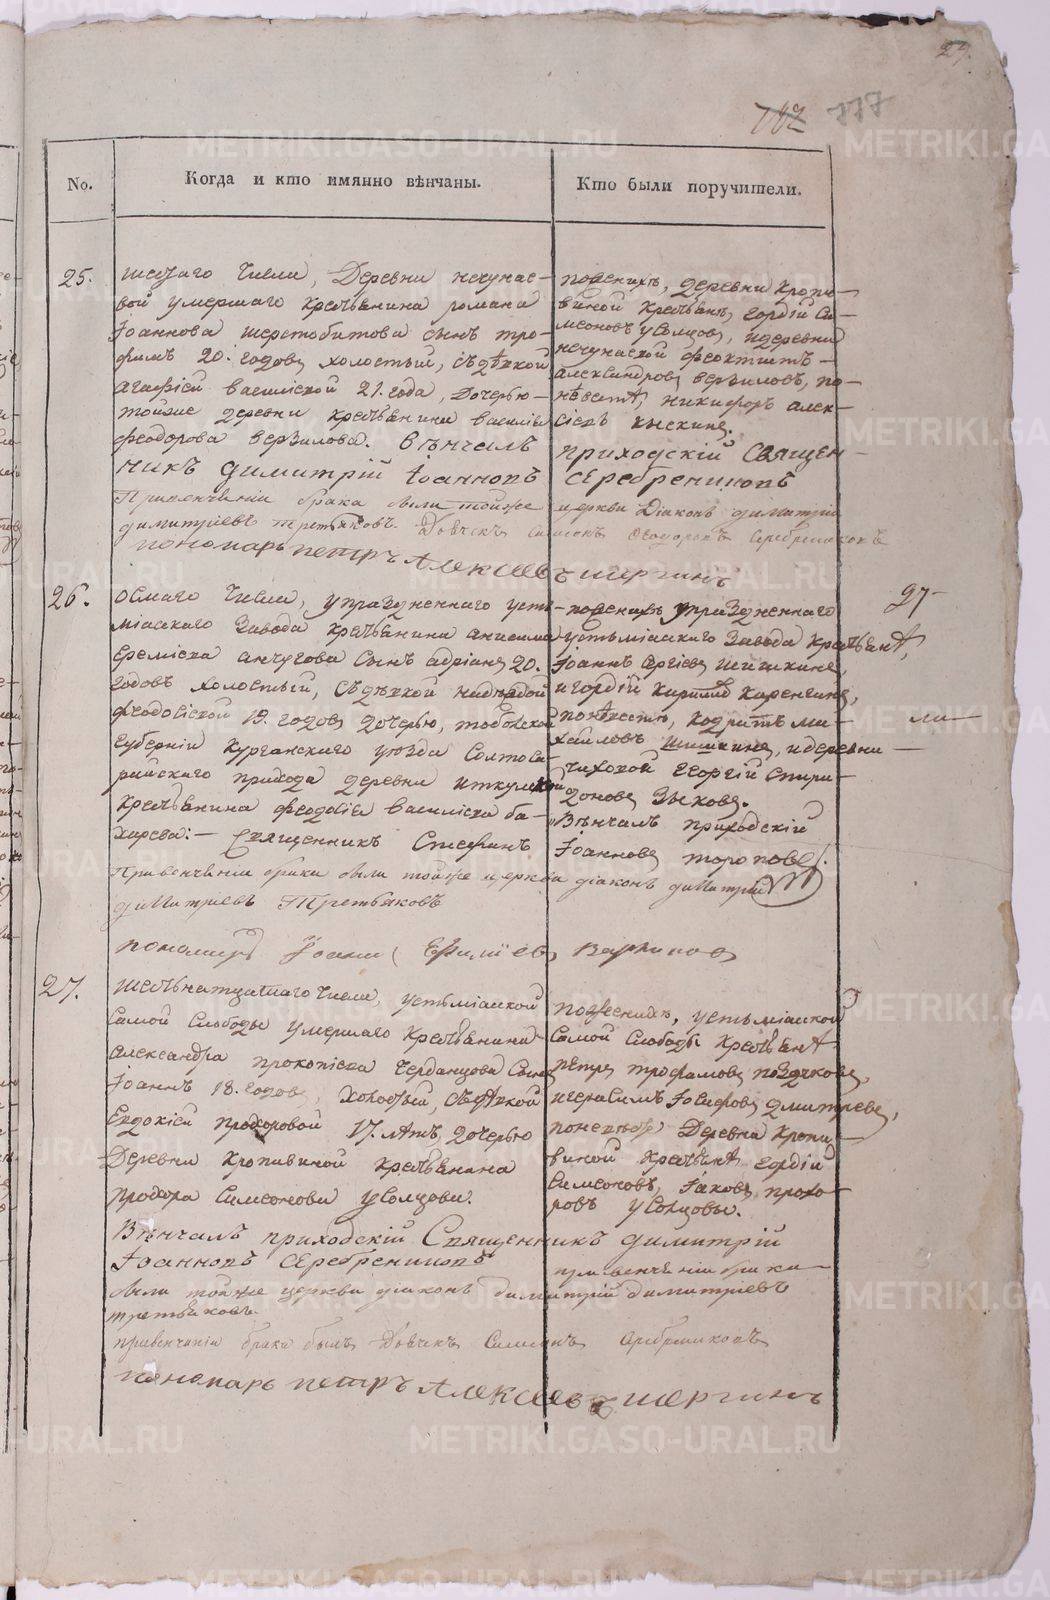 29.
777
No.
Когда и кто имянно вѣнчаны.
Кто были поручители.
25.
шестаго числа, Деревни нечунае-
вой умершаго Крестьянина романа
Іоаннова шерстобитова сынъ тро-
фимъ 20. годовъ холостый, съ дѣвкой
агафіей васильевой 21. года, Дочерью
тойже деревни крестьянина василія
феодорова верзилова. Вѣнчалъ
никъ димитрій Іоанновъ
При венчаніи брака были тойже
димитріевъ третьяковъ. Дьячекъ
пономарь петръ Алексеевъ шергинъ
по женихѣ, деревни Кропи-
виной Крестьянъ, гордій Си-
меоновъ усольцовъ, и деревни
нечунаевой феоктистъ
александровъ верзиловъ, по
невестѣ, никифоръ алек-
сіевъ кыскинъ.
приходскій Священ-
серебрениковъ
церкви Діаконъ димитрій
Симеонъ Феодоровъ Серебрениковъ
26.
осмаго числа, упраздненнаго усть-
міасскаго Завода Крестьянина анисима
Еремѣева анчугова Сынъ адріанъ 20.
годовъ холостый, съ дѣвкой надеждой
феодосіевой 19. годовъ дочерью, тобольской
губерніи курганскаго уезда Солтоса-
райскаго прихода деревни иткульской
Крестьянина феодосія василіева ба-
харева: — Священникъ Стефанъ
При венчаніи брака были тойже церкви діаконъ димитрій
димитріевъ Третьяковъ
пономарь Іоаннъ Ефиміевъ Варлаковъ
по женихѣ упраздненнаго
устьміасскаго Завода Крестьянѣ,
Іоаннъ Сергіевъ шишкинъ,
и гордій Кириловъ Каренгинъ,
по невестѣ, кодратъ ми-
хайловъ шишкинъ, и деревни
чиховой георгій спири-
доновъ Зыковъ.
Вѣнчалъ приходскій
Іоанновъ тороповъ.
27
27.
шестьнатцатаго числа, устьміасской
самой слободы умершаго крестьянина
александра прокопіева Черданцова Сынъ
Іоаннъ 18. годовъ, холостый, съ дѣвкой
Евдокіей прохоровой 17. лѣтъ, дочерью
Деревни Кропивиной крестьянина
прохора Симеонова усольцова.
Вѣнчалъ приходскій Священникъ димитрій
Іоанновъ Серебрениковъ
при венчаніи брака
были тойже церкви діаконъ димитрій димитріевъ
третьяковъ.
при венчаніи брака былъ Дьячекъ Симеонъ Серебрениковъ
пономарь петръ Алексеевъ шергинъ
по женихѣ, устьміасской
Самой Слободы Крестьянѣ
петръ трофимовъ поздчковъ,
и герасимъ Іосифовъ дмитревъ,
по невестѣ Деревни Кропи-
виной Крестьянѣ гордій
Симеоновъ, Іаковъ прохо-
ровъ усольцовы.